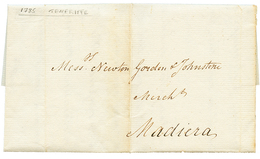 1786
Mess.rs Newton Gordon & Johnstone
Merch.ts
Madiera